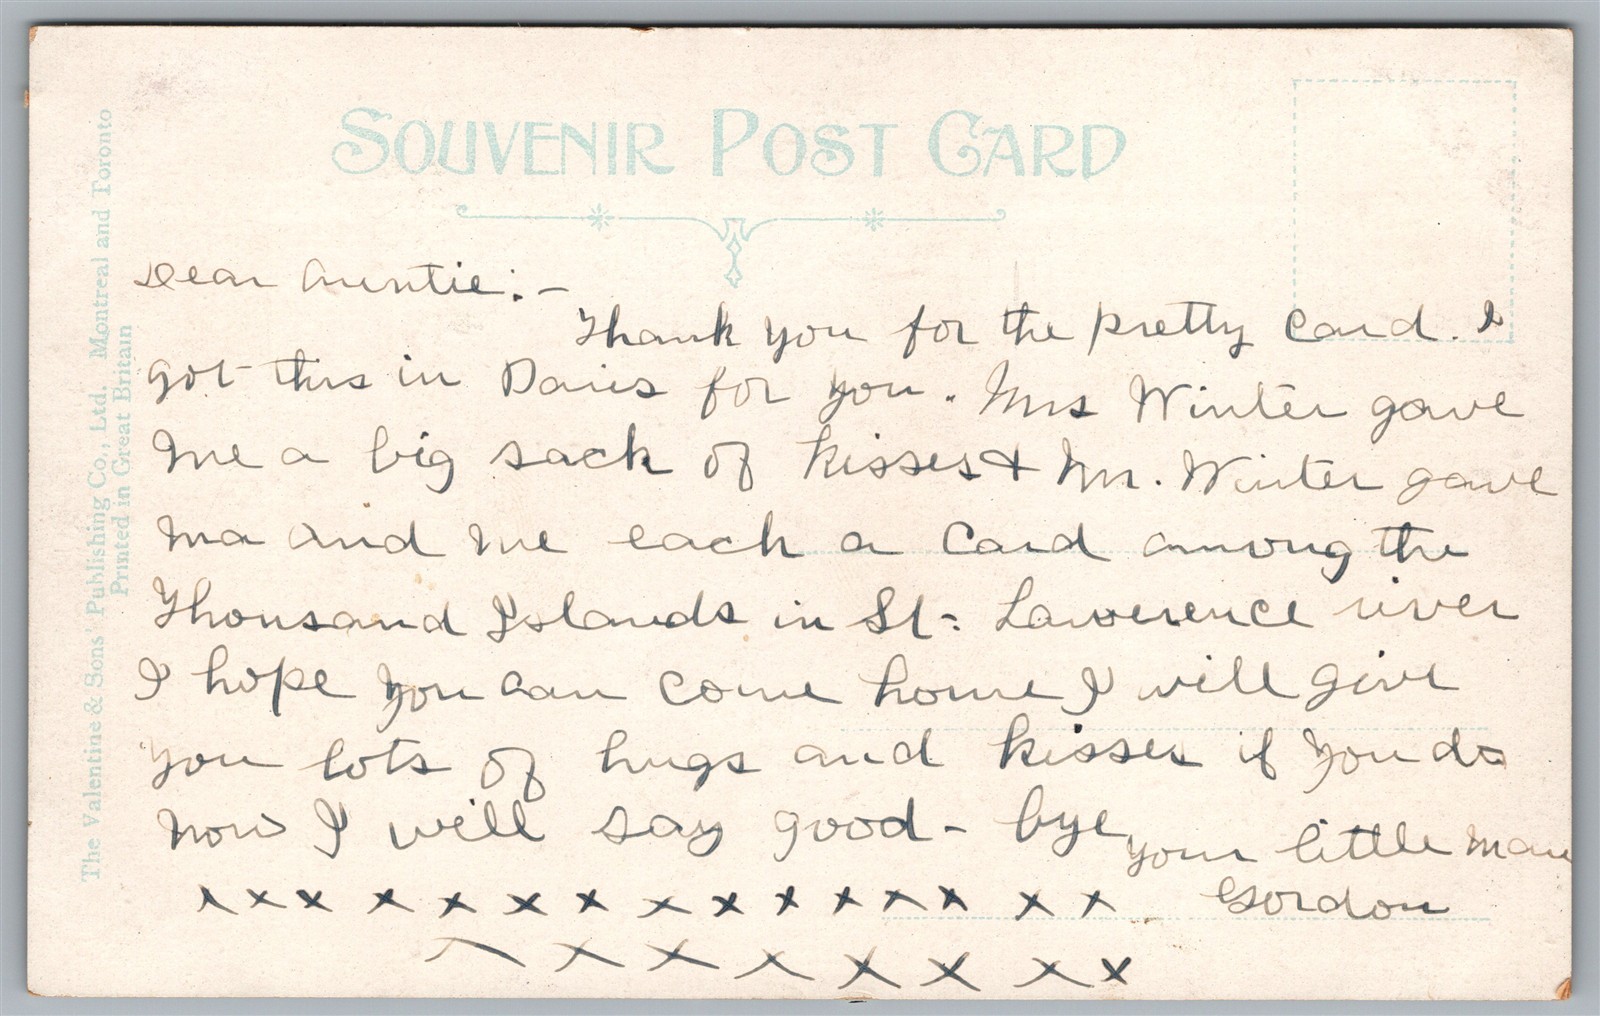 SOUVENIR POST CARD
The Valentine & Sons' Publishing Co., Ltd. Montreal and Toronto
Printed in Great Britain
Dear Auntie:-
Thank you for the pretty card. I
got this in Davis for you. Mrs Winter gave
me a big sack of kisses & Mr. Winter gave
ma and me each a card among the
Thousand Islands in St. Lawerence river
I hope you can come home I will give
you lots of hugs and kisses if you do
now I will say good-bye
your little man
Gordon
x x x x x x x x x x x x x x x
x x x x x x x x